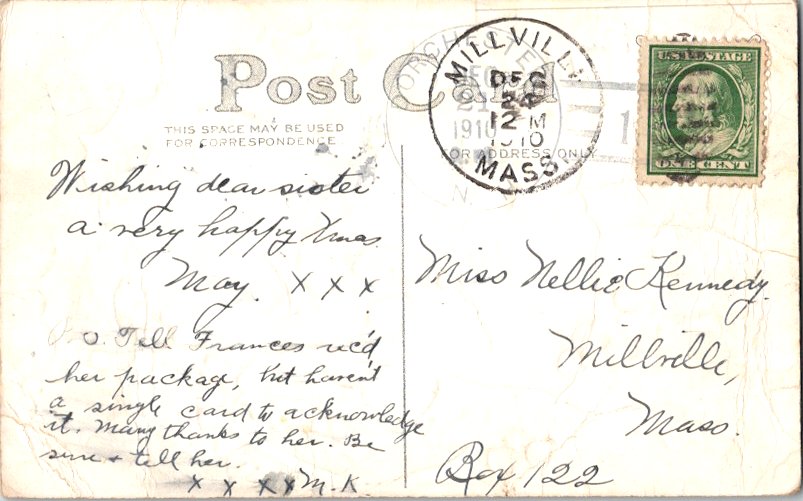 Post Card
THIS SPACE MAY BE USED
FOR CORRESPONDENCE
FOR ADDRESS ONLY
DORCHESTER
DEC
21
1910
N.
MILLVILLE
DEC
24
12 M
1910
MASS.
U.S. POSTAGE
ONE CENT
Wishing dear sister
a very happy Xmas.
May. X X X
P.S. Tell Frances rec'd
her package, but haven't
a single card to acknowledge
it. Many thanks to her. Be
sure + tell her.
x x x x M.K
Miss Nellie Kennedy.
Millville,
Mass.
Box 122